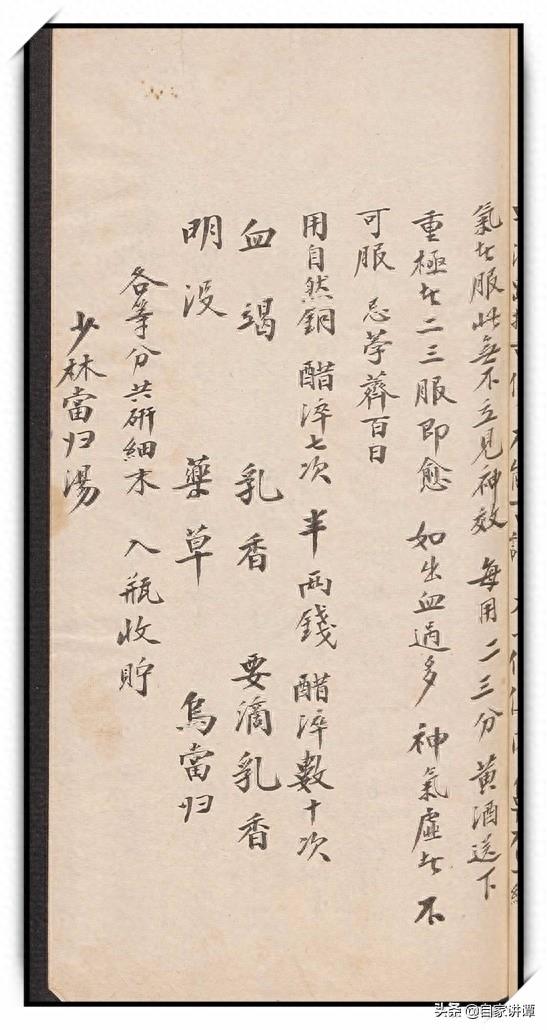 氣者服此無不立見神效 每用二三分 黃酒送下
重極者二三服即愈 如出血過多 神氣虛者 不
可服 忌荸薺百日
用自然銅 醋淬七次 半两錢 醋淬數十次
血竭 乳香 要滴乳香
明没 藥草 烏當归
各等分共研細末 入瓶收貯
少林當归湯
头条 @自家讲谭